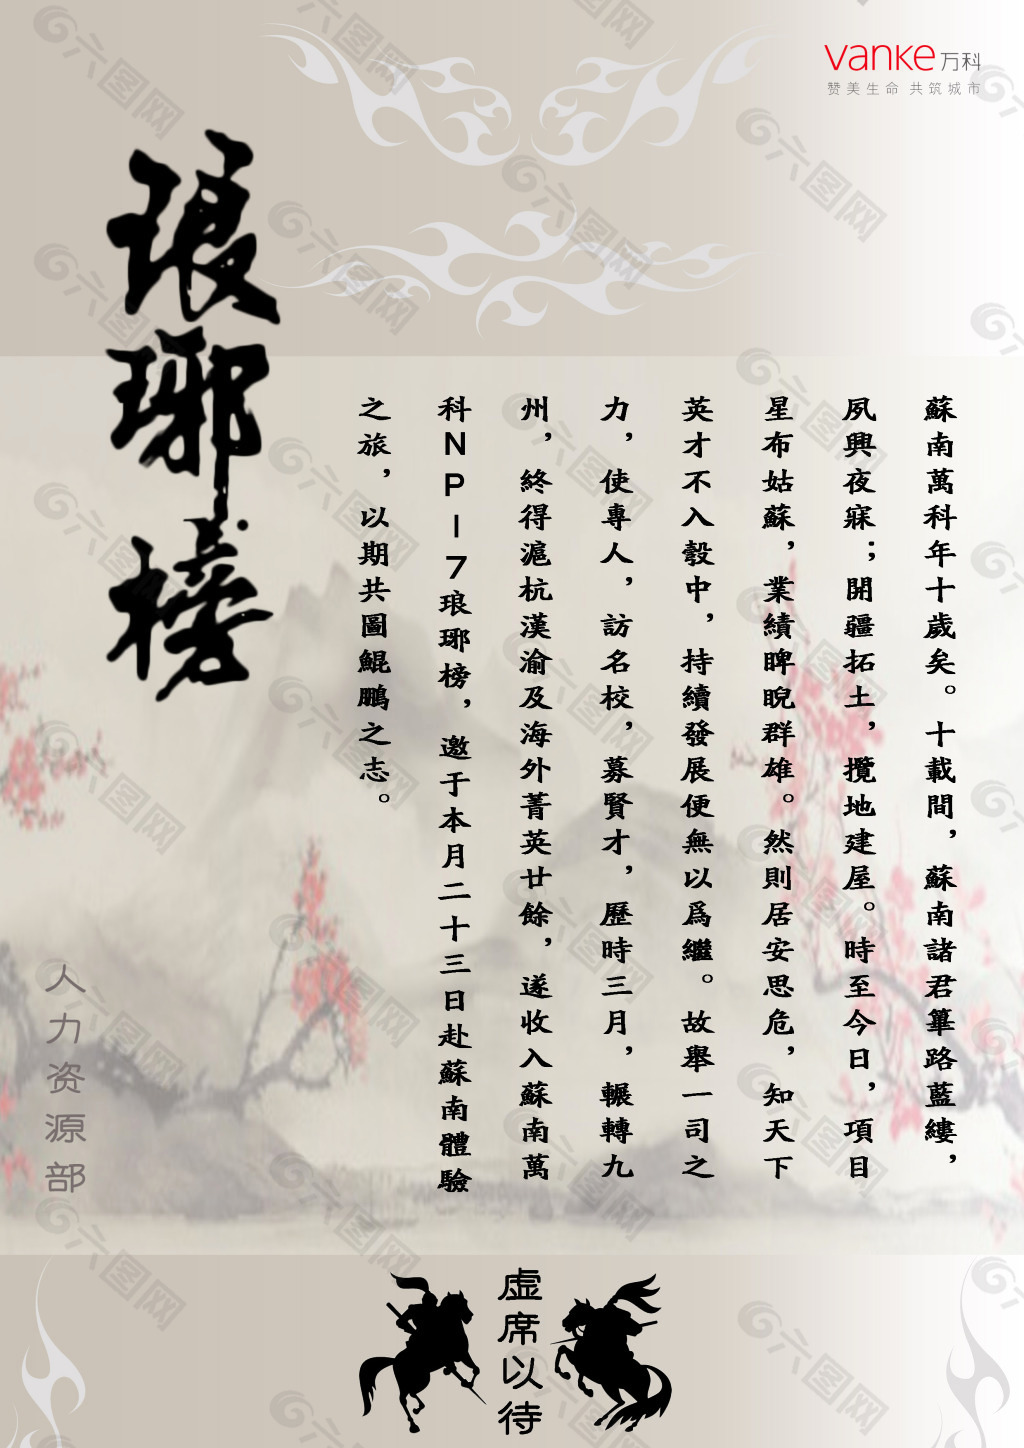 vanke 万科
赞美生命 共筑城市
琅琊榜
蘇南萬科年十歲矣。十載間，蘇南諸君篳路藍縷，
夙興夜寐；開疆拓土，攬地建屋。時至今日，項目
星布姑蘇，業績睥睨群雄。然則居安思危，知天下
英才不入彀中，持續發展便無以爲繼。故舉一司之
力，使專人，訪名校，募賢才，歷時三月，輾轉九
州，終得滬杭漢渝及海外菁英廿餘，遂收入蘇南萬
科NP-7琅琊榜，邀于本月二十三日赴蘇南體驗
之旅，以期共圖鯤鵬之志。
人力资源部
虚席以待
六图网